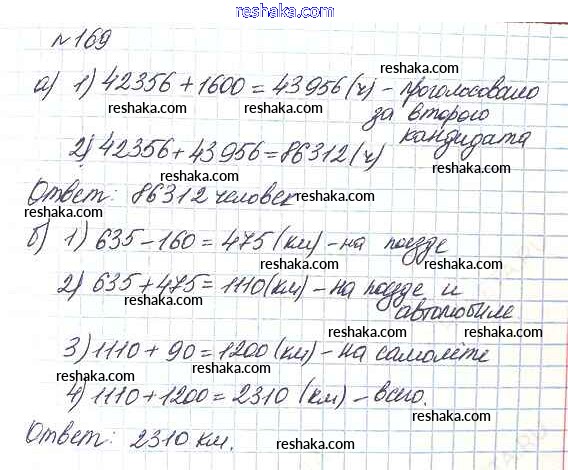 reshaka.com
№169
а) 1) 42356 + 1600 = 43956 (ч) – проголосовало
reshaka.com
reshaka.com
за второго
reshaka.com
кандидата
2) 42356 + 43956 = 86312 (ч)
reshaka.com
reshaka.com
reshaka.com
Ответ: 86312 человек
reshaka.com
reshaka.com
б) 1) 635 – 160 = 475 (км) – на поезде
reshaka.com
reshaka.com
2) 635 + 475 = 1110 (км) – на поезде и
reshaka.com
автомобиле
reshaka.com
reshaka.com
3) 1110 + 90 = 1200 (км) – на самолёте
reshaka.com
reshaka.com
reshaka.com
4) 1110 + 1200 = 2310 (км) – всего.
reshaka.com
reshaka.com
Ответ: 2310 км.
reshaka.com